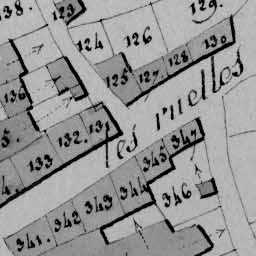 138.
123
129.
124
126
130
125
127
128
136
5.
132.
131
133
4.
les ruelles
347
345
344
346
343
342
341.